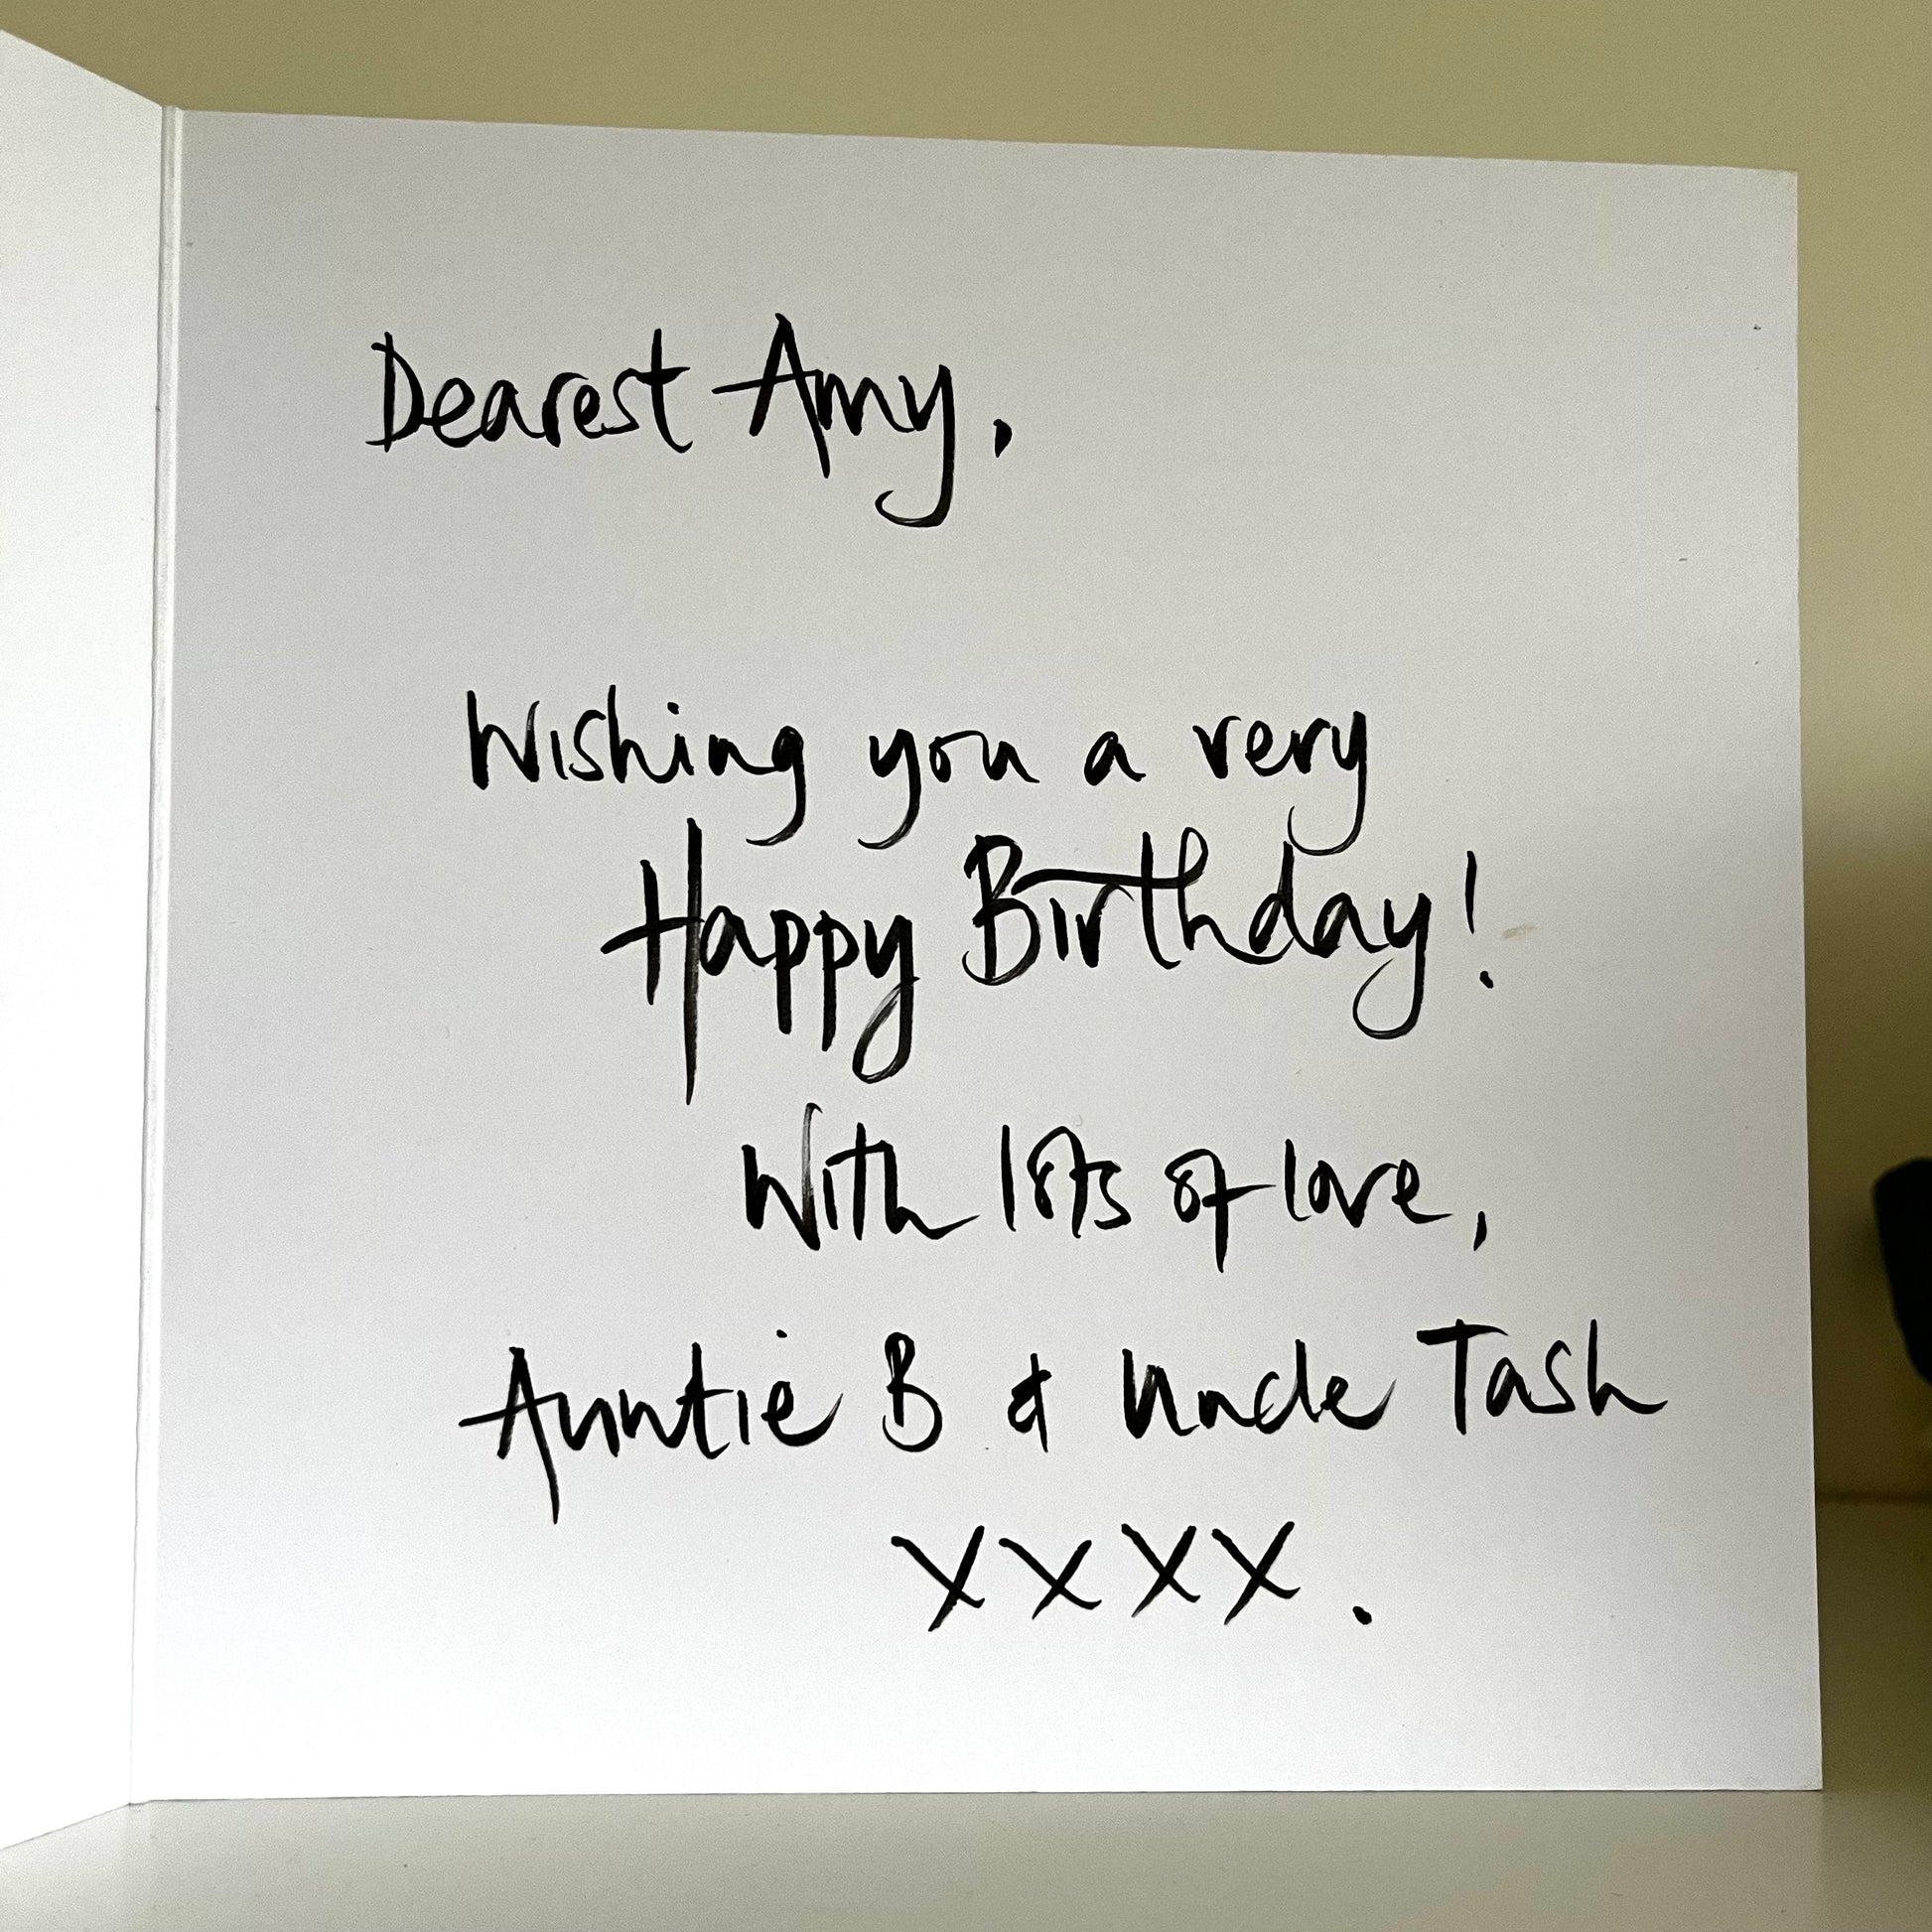 Dearest Amy,
Wishing you a very
Happy Birthday!
With lots of love,
Auntie B & Uncle Tash
xxxx.